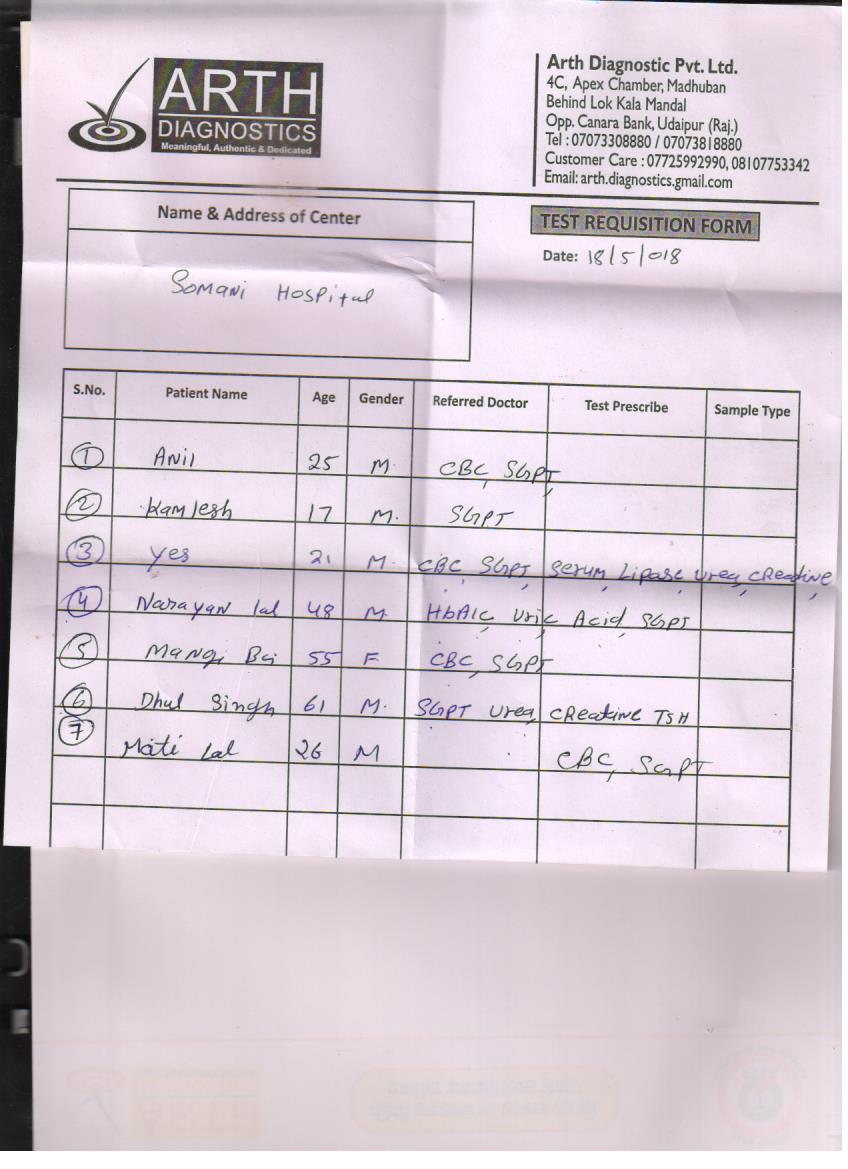 ARTH
DIAGNOSTICS
Meaningful, Authentic & Dedicated
Arth Diagnostic Pvt. Ltd.
4C, Apex Chamber, Madhuban
Behind Lok Kala Mandal
Opp. Canara Bank, Udaipur (Raj.)
Tel : 07073308880 / 07073818880
Customer Care : 07725992990, 08107753342
Email: arth.diagnostics.gmail.com
Name & Address of Center
TEST REQUISITION FORM
Date: 18/5/018
Somani Hospital
S.No. Patient Name Age Gender Referred Doctor Test Prescribe Sample Type
1 Anil 25 M. CBC, SGPT,
2 Kamlesh 17 M. SGPT
3 Yes 21 M. CBC, SGPT, Serum, Lipase, Urea, Creatine,
4 Narayan lal 48 M. HbA1c, Uric Acid, SGPT
5 Mangi Bai 55 F. CBC, SGPT
6 Dhul Singh 61 M. SGPT Urea, Creatine TSH
7 Moti Lal 26 M CBC, SGPT